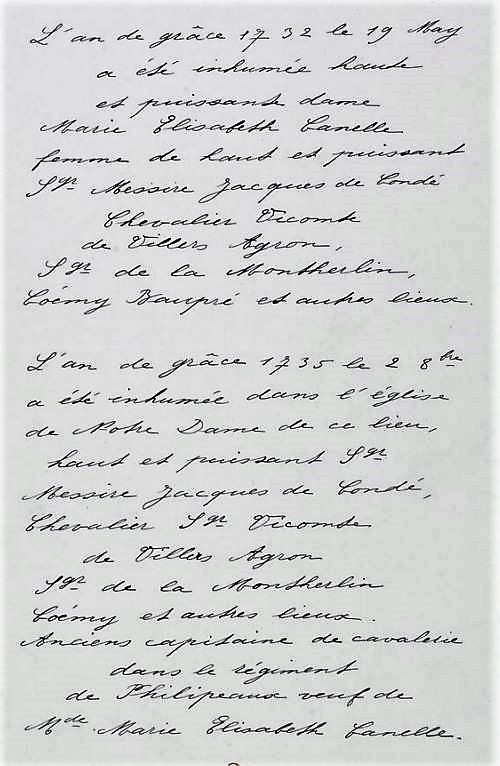 L'an de grâce 1732 le 19 May
a été inhumée haute
et puissante dame
Marie Elisabeth Canelle
femme de haut et puissant
Sgr Messire Jacques de Condé
Chevalier Vicomte
de Villers Agron,
Sgr de la Montherlin,
Coémy Naupré et autres lieux.
L'an de grâce 1735 le 2 8bre
a été inhumée dans l'église
de Notre Dame de ce lieu,
haut et puissant Sgr
Messire Jacques de Condé,
Chevalier Sgr Vicomte
de Villers Agron
Sgr de la Montherlin
Coémy et autres lieux.
Anciens capitaine de cavalerie
dans le régiment
de Philipeaux veuf de
Mde. Marie Elisabeth Canelle.